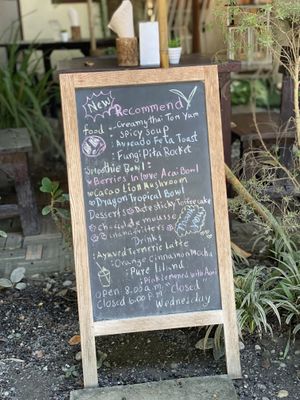 New Recommend
food : Creamy thai Tom Yum
Spicy Soup
Avocado Feta Toast
Fungi Pita Rocket
Smoothie Bowl
Berries In love Acai Bowl
Cacao Lion Mushroom
Dragon Tropical Bowl
Desserts Date sticky Toffee cake
chocolate mousse
Thank you
Drinks
Ayurved Turmeric Latte
Orange Cinnamon Mocha
Pure
Pink lemoned with Acai
Open 8.00 a.m.
Closed 6.00 P.M. Closed
Wednesday